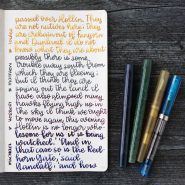 passed over Hollin. They
are not natives here; they
are crebain out of Fangorn
and Dunland. I do not
know what they are about:
possibly there is some
trouble away south from
which they are fleeing;
but I think they are
spying out the land. I
have also glimpsed many
hawks flying high up in
the sky. I think we ought
to move again this evening.
Hollin is no longer whole-
some for us: it is being
watched.' 'And in
that case so is the Red-
horn Gate,' said
Gandalf; 'and how